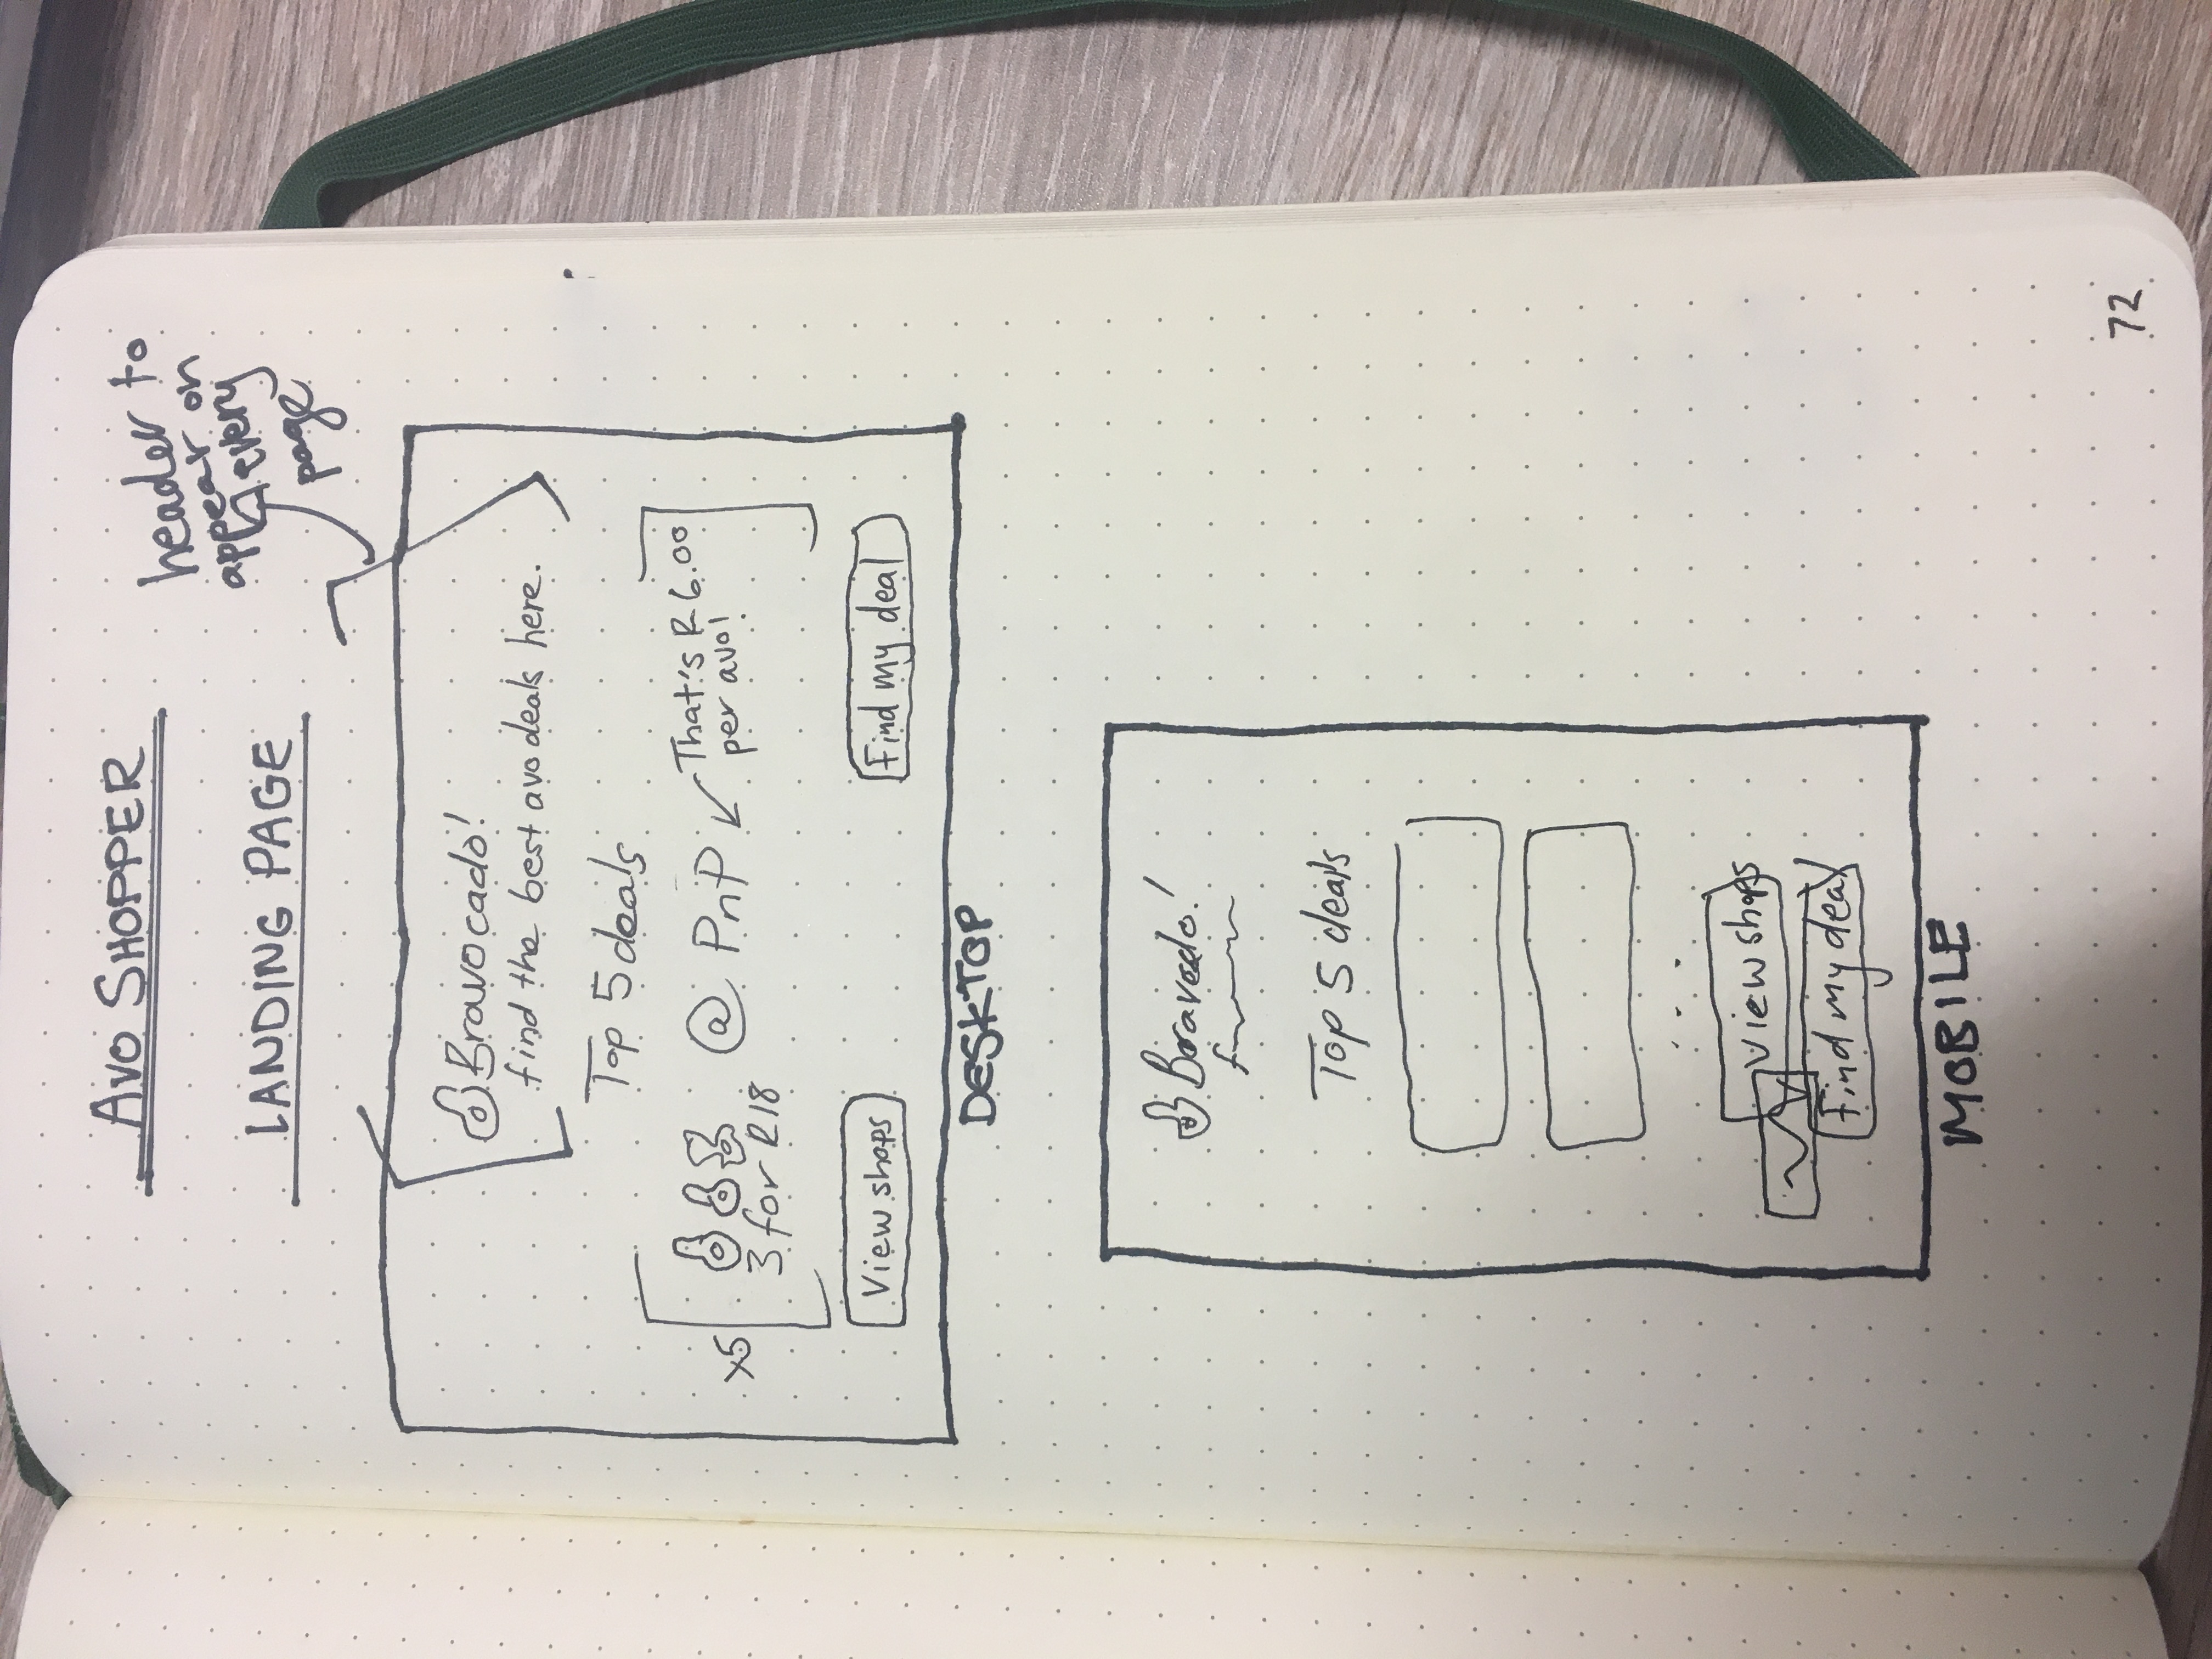 AVO SHOPPER
header to
appear on
every
page
LANDING PAGE
Bravocado!
find the best avo deals here.
Top 5 deals
x5
3 for R18
@ PnP
That's R 6.00
per avo!
View shops
Find my deal
DESKTOP
Top 5 deals
...
View shops
Find my deal
MOBILE
72